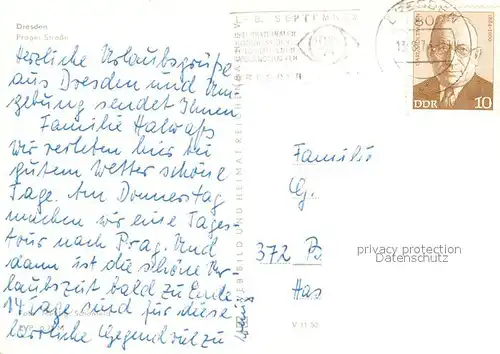 Dresden
Prager Straße
Herzliche Urlaubsgrüße
aus Dresden und Um
gebung sendet Ihnen
Familie Halwaß
wir verleben hier bei
gutem Wetter schöne
Tage. Am Donnerstag
machen wir eine Tages-
tour nach Prag. Und
dann ist die schöne Ur
laubszeit bald zu Ende
14 Tage sind für diese
herrliche Gegend viel zu
wenig
BILD UND HEIMAT REICHENBACH
V 11 50
SEPTEMBER
DRESDEN
80
DDR 10
Familie
G.
372
Has
privacy protection
Datenschutz